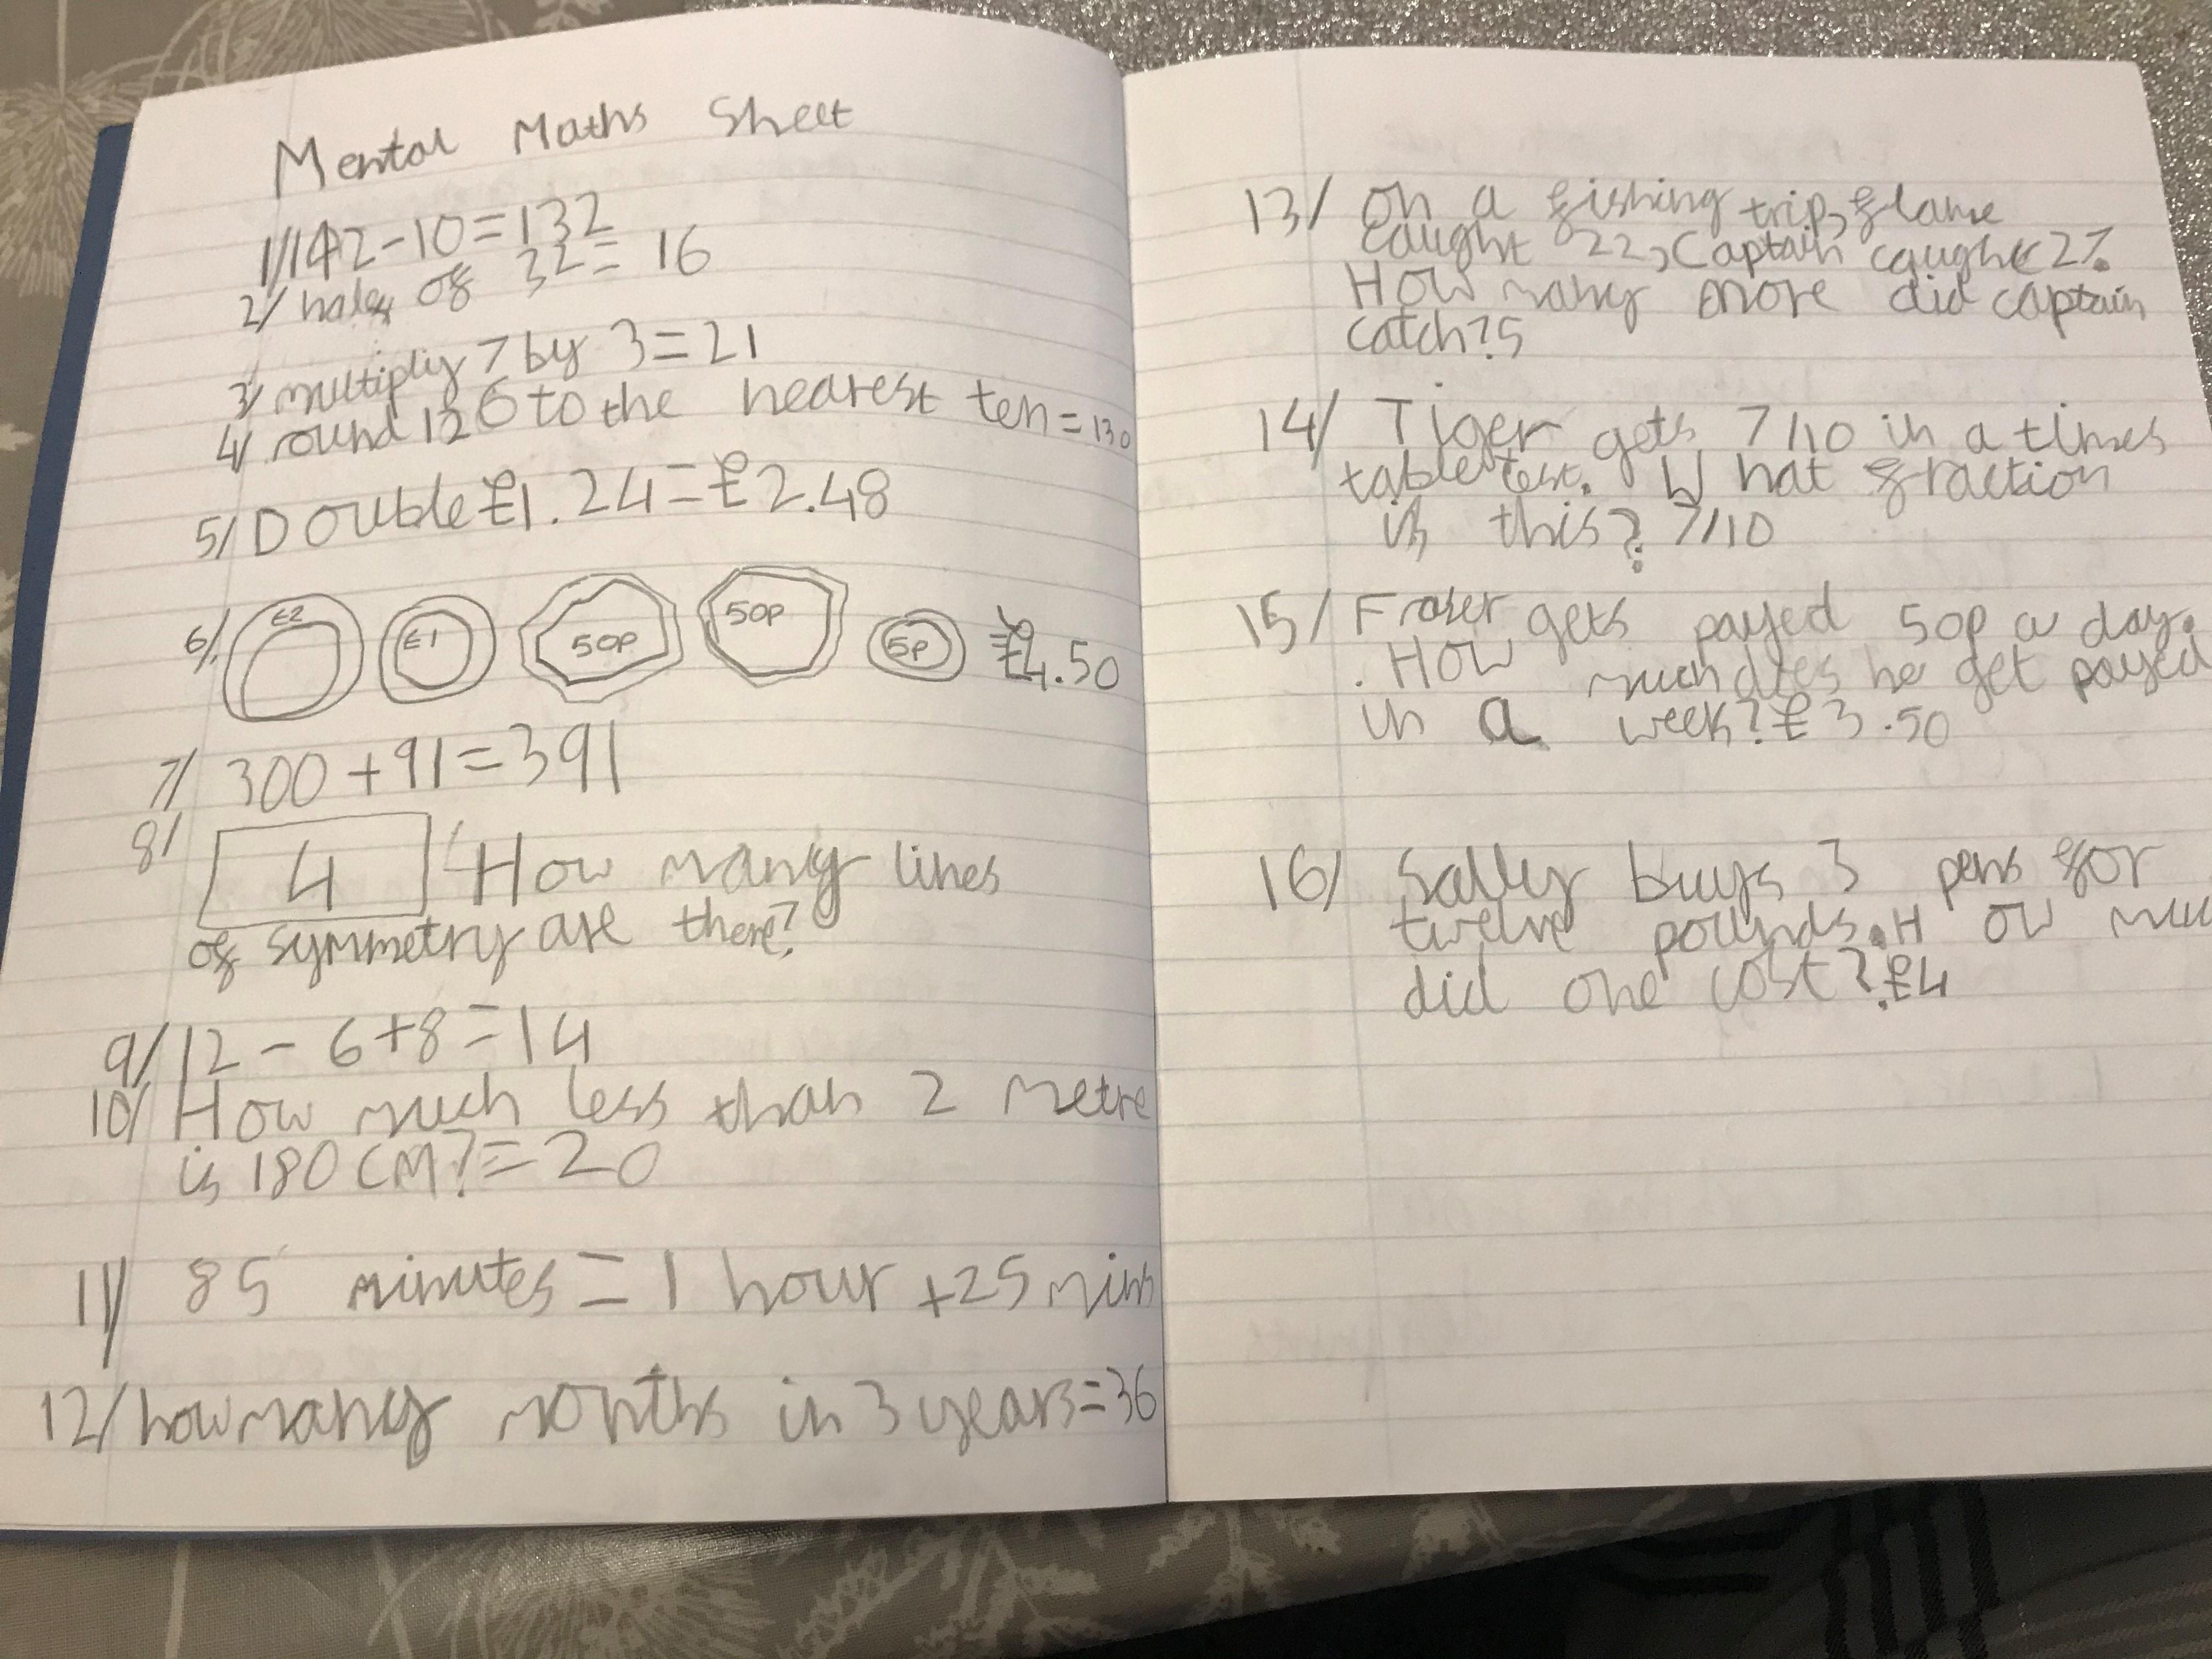 Mental Maths Sheet
1/142-10=132
2/ half of 32= 16
3/ multiply 7 by 3=21
4/ round 126 to the nearest ten=130
5/ Double £1.24=£2.48
6/ £2 £1 50p 50p 5p =£4.50
7/ 300+91=391
8/ 4 How many lines
of symmetry are there?
9/ 12-6+8=14
10/ How much less than 2 metre
is 180 CM?=20
11/ 85 minutes = 1 hour +25 mins
12/ how many months in 3 years=36
13/ On a fishing trip, flame
caught 22, Captain caught 27.
How many more did captain
catch? 5
14/ Tiger gets 7/10 in a times
table test. What fraction
is this? 7/10
15/ Fraser gets payed 50p a day.
. How much does he get payed
in a week? £3.50
16/ Sally buys 3 pens for
twelve pounds. How much
did one cost? £4